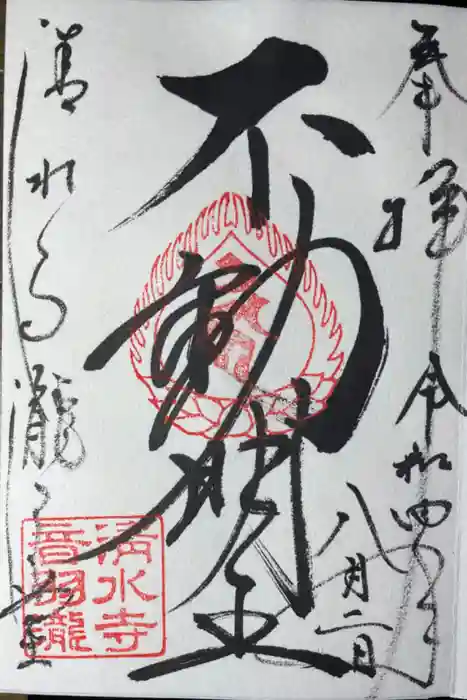 奉拝
令和四年
八月二日
不動明王
清水寺
音羽瀧